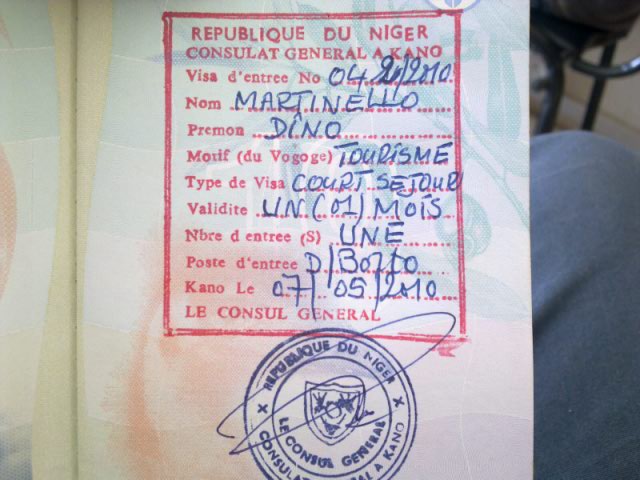 REPUBLIQUE DU NIGER
CONSULAT GENERAL A KANO
Visa d'entree No 04 /2010
Nom MARTINELLO
Premon DINO
Motif (du Vogoge) TOURISME
Type de Visa COURT SEJOUR
Validite UN (01) MOIS
Nbre d entree (S) UNE
Poste d'entree
Kano Le 07/05/2010
LE CONSUL GENERAL
REPUBLIQUE DU NIGER
LE CONSUL GENERAL
CONSULAT GENERAL A KANO